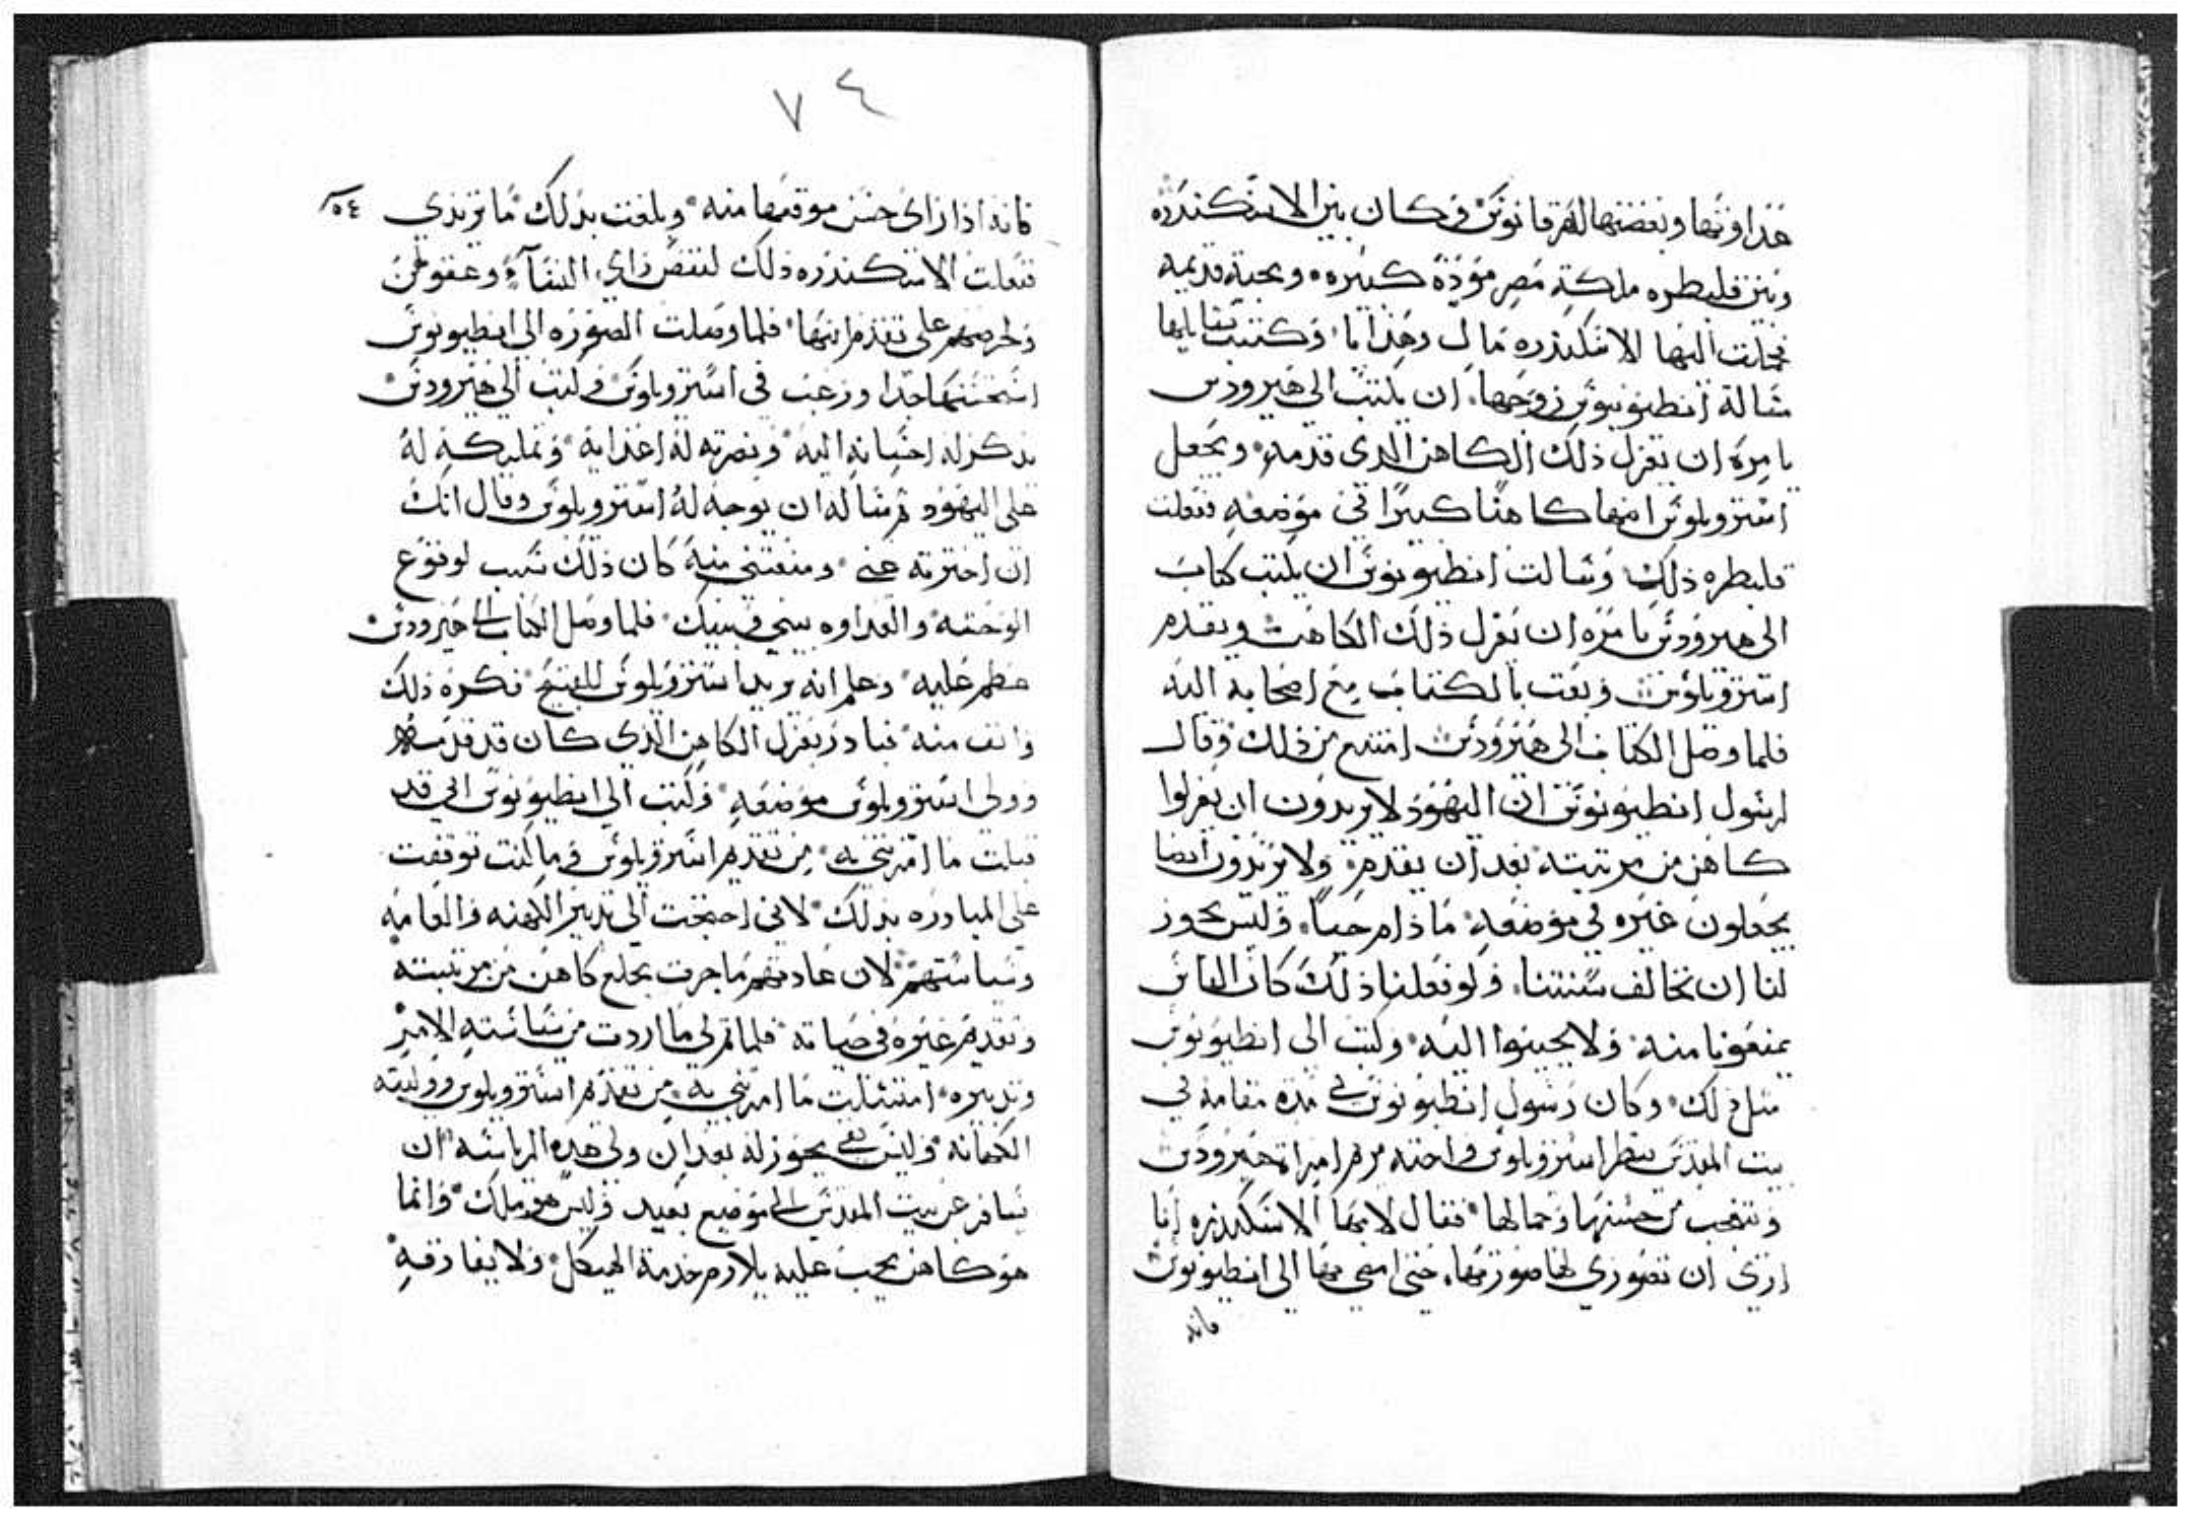 عداوتها وبغضتها لهرقانوس وكان بين الاسكندره
وبين قلبطره ملكة مصر مودة كبيره ومحبة قديمه
فحملت اليها الاسكندره مال وهدايا وكتبت
مساله انطيونيوس زوجها ان يكتب الى هيرودس
يامره ان يعزل ذلك الكاهن الدى قدمه ويجعل
استروبلوس ابنها كاهنا كبيرا في موضعه ففعلت
قلبطره ذلك وسالت انطيونيوس ان يكتب كتاب
الى هيرودس يامره ان يعزل ذلك الكاهن ويقدم
استروبلوس وبعت بالكتاب مع اصحابه اليه
فلما وصل الكتاب الى هيرودس امتنع من ذلك وقال
لرسول انطيونيوس ان اليهود لا يريدون ان يعزلوا
كاهن من مرتبته بعد ان يقدم ولا يريدون ايضا
يجعلون غيره في موضعه ما دام حيا وليس يجوز
لنا ان نخالف سنتنا ولو فعلنا ذلك كان الناس
يمنعونا منه ولا يجيبوا اليه وكتب الى انطيونيوس
مثل ذلك وكان رسول انطيونيوس في مدة مقامه في
بيت المقدس ينظر استروبلوس واخته مريم امراة هيرودس
وتعجب من حسنها وجمالها فقال لامها الاسكندره انا
ارى ان تصوري لها صورتها حتى امضي بها الى انطيونيوس
فانه
٧٤
٥٤
فانه اذا راى حسن موقعها منه وبلغت بدلك ما تريدي
ففعلت الاسكندره ذلك لنقص راي النسآء وعقولهن
ولحرصهم على تقدم ابنها فلما وصلت الصوره الى انطيونيوس
استحسنها جدا ورغب في استروبلوس وكتب الى هيرودس
يدكر له احسانه اليه ونصرته له اعدايه وتمليكه له
على اليهود ثم ساله ان يوجه له استروبلوس وقال انك
ان اخترته عني ومنعتني منه كان ذلك سبب لوقوع
الوحشه والعداوه بيني وبينك فلما وصل الكتاب الى هيرودس
عظم عليه وعلم انه يريد استروبلوس للقبيح فكره ذلك
وانف منه فبادر بعزل الكاهن الذي كان قد قدمه
وولى استروبلوس موضعه وكتب الى انطيونيوس اني قد
قبلت ما امرتني به من تقديم استروبلوس وما كنت توقفت
على المبادره بدلك لاني احتجت الى تدبير الكهنه والعامه
وسياستهم لان عادتهم ما جرت بخلع كاهن من مرتبته
وتقديم غيره في حياته فلما تم لى ما اردت من سياسته الامر
وتدبيره امتثلت ما امرتني به من تقدم استروبلوس ووليته
الكهانه وليس يجوز له بعد ان ولى هذه الرياسه ان
يسافر عن بيت المقدس الى موضع بعيد وليس هو ملك وانما
هو كاهن يجب عليه يلازم خدمة الهيكل ولا يفارقه